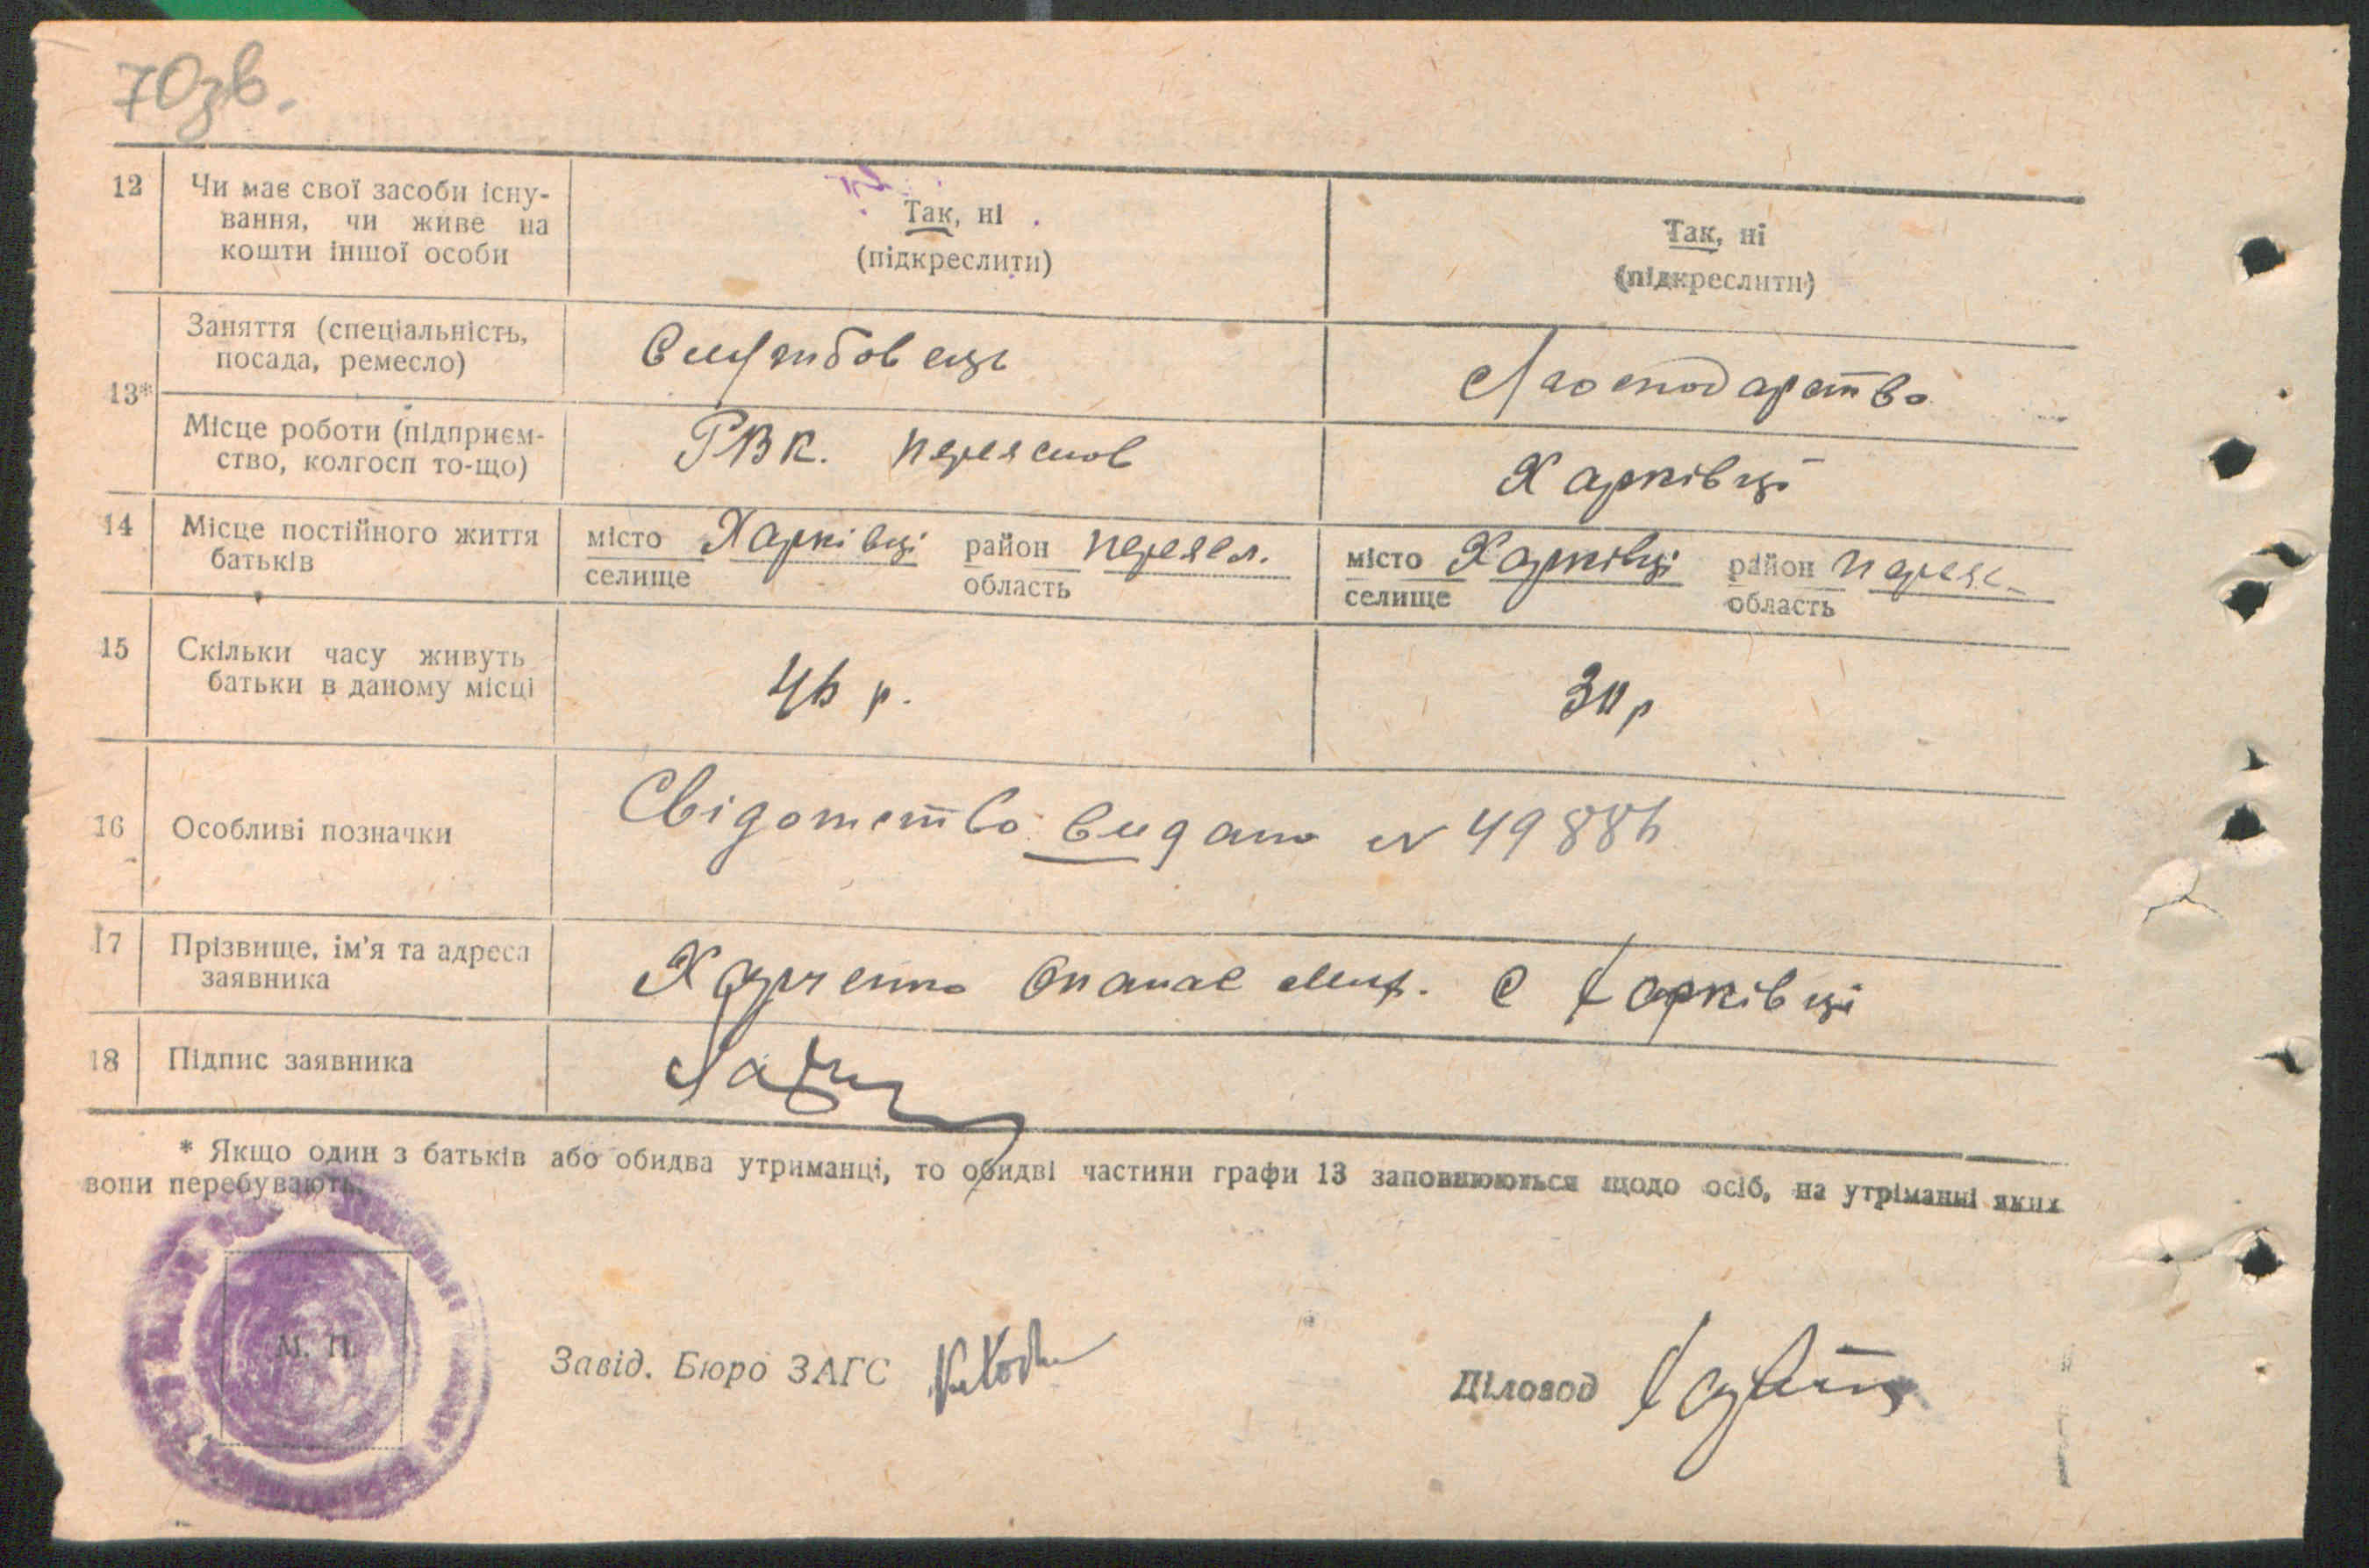 70зв.
12 Чи має свої засоби існу-
вання, чи живе на
кошти іншої особи
Так, ні
(підкреслити)
Так, ні
(підкреслити)
13*
Заняття (спеціальність,
посада, ремесло)
Службовець
Господарство
Місце роботи (підприєм-
ство, колгосп то-що)
РВК.
Харківці
14 Місце постійного життя
батьків
місто Харківці район Переял.
селище область
місто Харківці район Переяс
селище область
15 Скільки часу живуть
батьки в даному місці
р.
р
16 Особливі позначки
Свідотство видано N
17 Прізвище, ім'я та адреса
заявника
Харченко Опанас С Харківці
18 Підпис заявника
* Якщо один з батьків або обидва утриманці, то обидві частини графи 13 заповнюються щодо осіб, на утріманні яких
вони перебувають.
М. П.
Завід. Бюро ЗАГС
Діловод